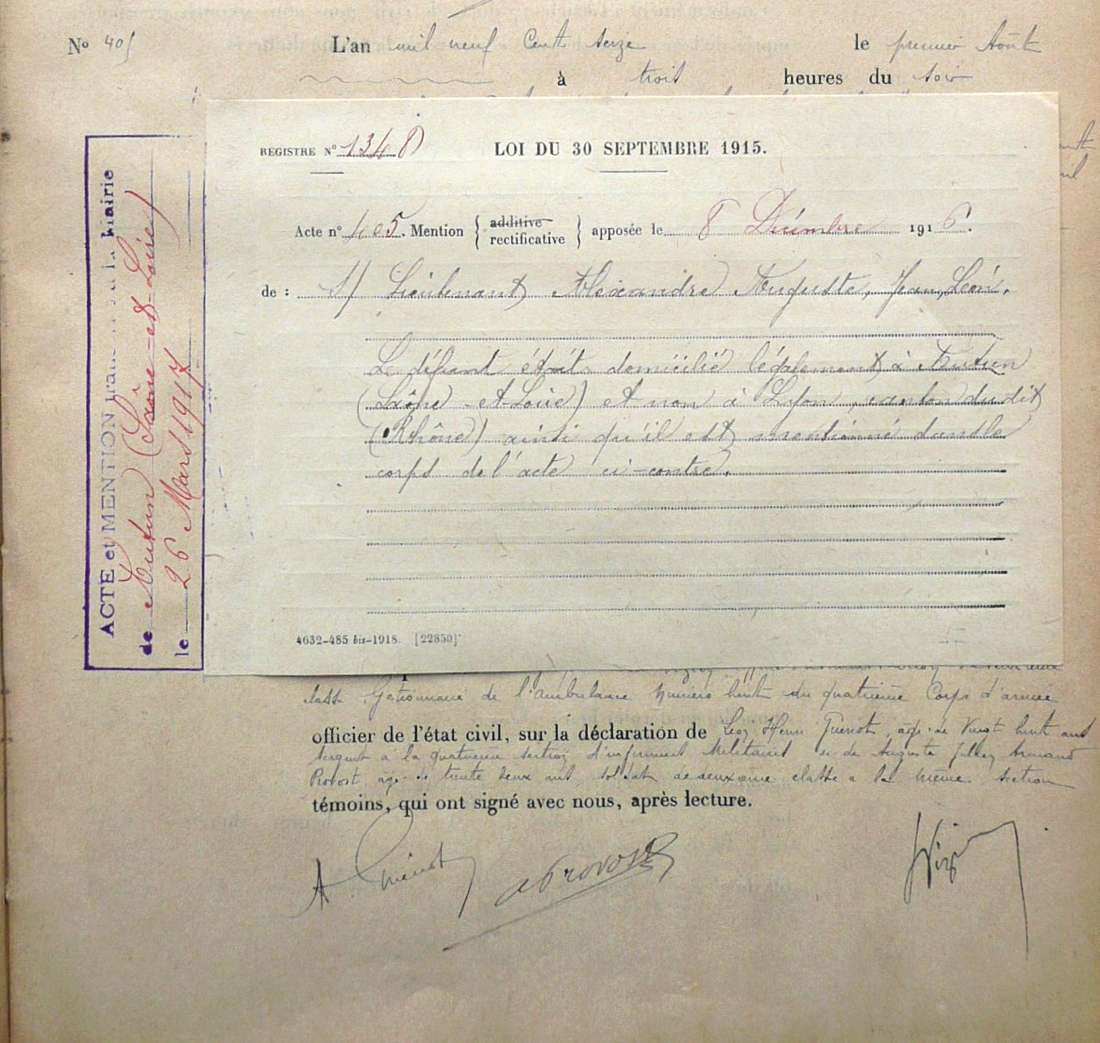 Nº 405 L'an mil neuf cent seize le premier Août
à trois heures du soir
ACTE et MENTION à la Mairie
de Autun (Saône-et-Loire)
le 26 Mars 1917
REGISTRE Nº 134 LOI DU 30 SEPTEMBRE 1915.
Acte nº 405. Mention { additive rectificative } apposée le 8 Décembre 1916.
de : 1/ Lieutenant Alexandre Auguste, Jean, Léon.
Le défunt était domicilié légalement à Autun
(Saône-et-Loire) et non à Lyon, canton du dit
(Rhône) ainsi qu'il est mentionné dans le
corps de l'acte ci-contre.
4632-485 bis-1918. [22850]
classe Gestionnaire de l'ambulance numéro huit du quatrième Corps d'armée
officier de l'état civil, sur la déclaration de Henri âgé de vingt huit ans
sergent à la quatrième section d'infirmiers militaires et de Auguste Armand
Provost, âgé de trente deux ans, soldat de deuxième classe à la même section
témoins, qui ont signé avec nous, après lecture.
A Provost